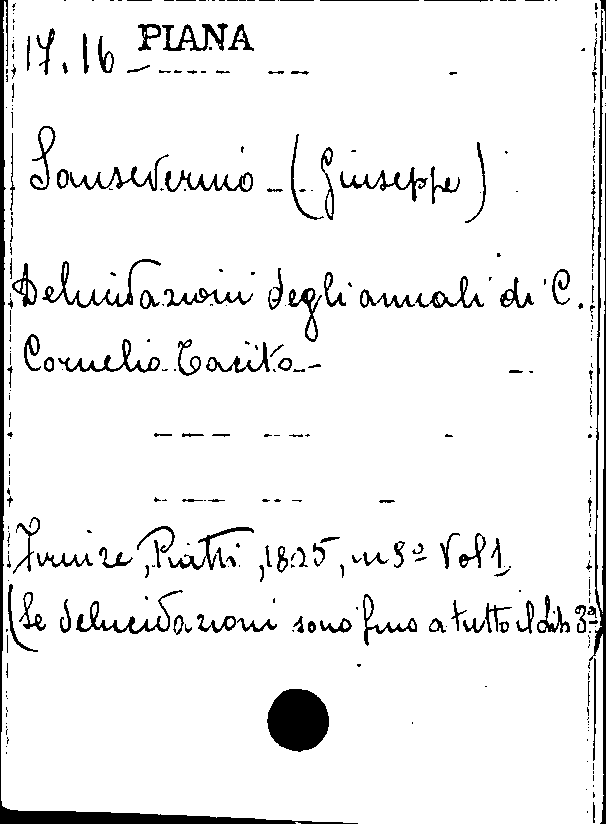 17.16 PIANA
Sanseverino - (Giuseppe)
Delucidazioni degli annali di C.
Cornelio Tacito -
Firenze, Piatti, 1825, in 8º Vol 1
(Le delucidazioni sono fino a tutto il Lib 3º)